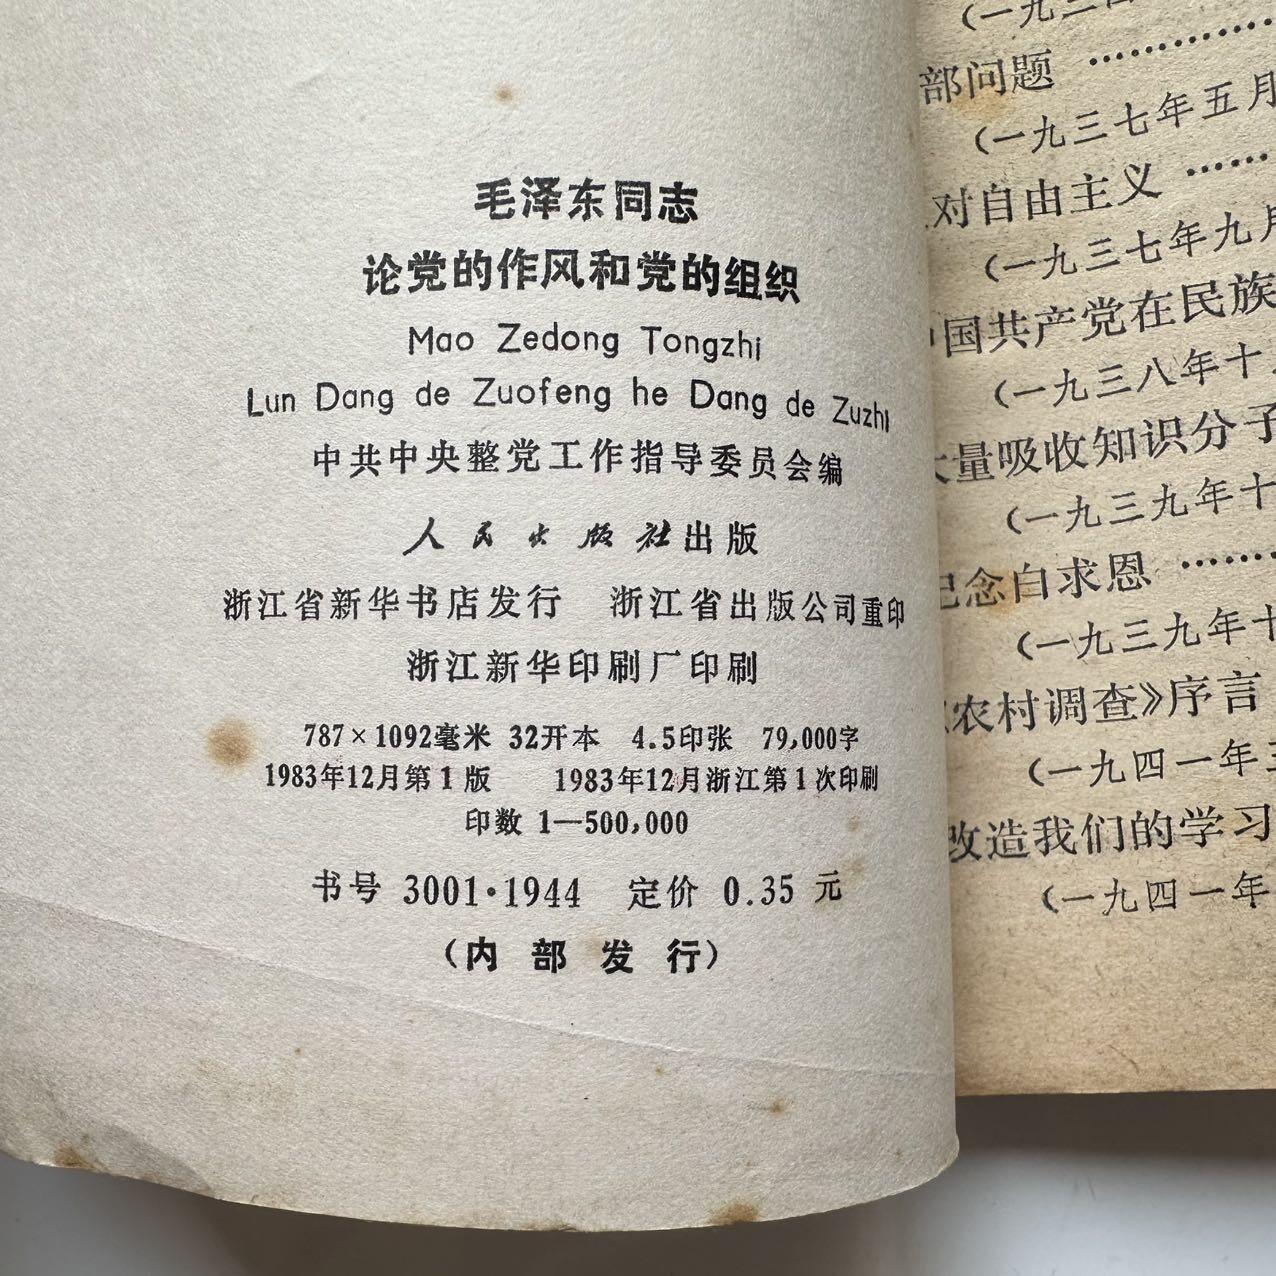 毛泽东同志
论党的作风和党的组织
Mao Zedong Tongzhi
Lun Dang de Zuofeng he Dang de Zuzhi
中共中央整党工作指导委员会编
人民出版社出版
浙江省新华书店发行 浙江省出版公司重印
浙江新华印刷厂印刷
787×1092毫米 32开本 4.5印张 79,000字
1983年12月第1版 1983年12月浙江第1次印刷
印数 1—500,000
书号 3001·1944 定价 0.35 元
（内部发行）
部问题 ………
（一九三七年五月
对自由主义 ………
（一九三七年九月
国共产党在民族
（一九三八年十
量吸收知识分子
（一九三九年十
念白求恩 ………
（一九三九年十
农村调查》序言
（一九四一年三
改造我们的学习
（一九四一年